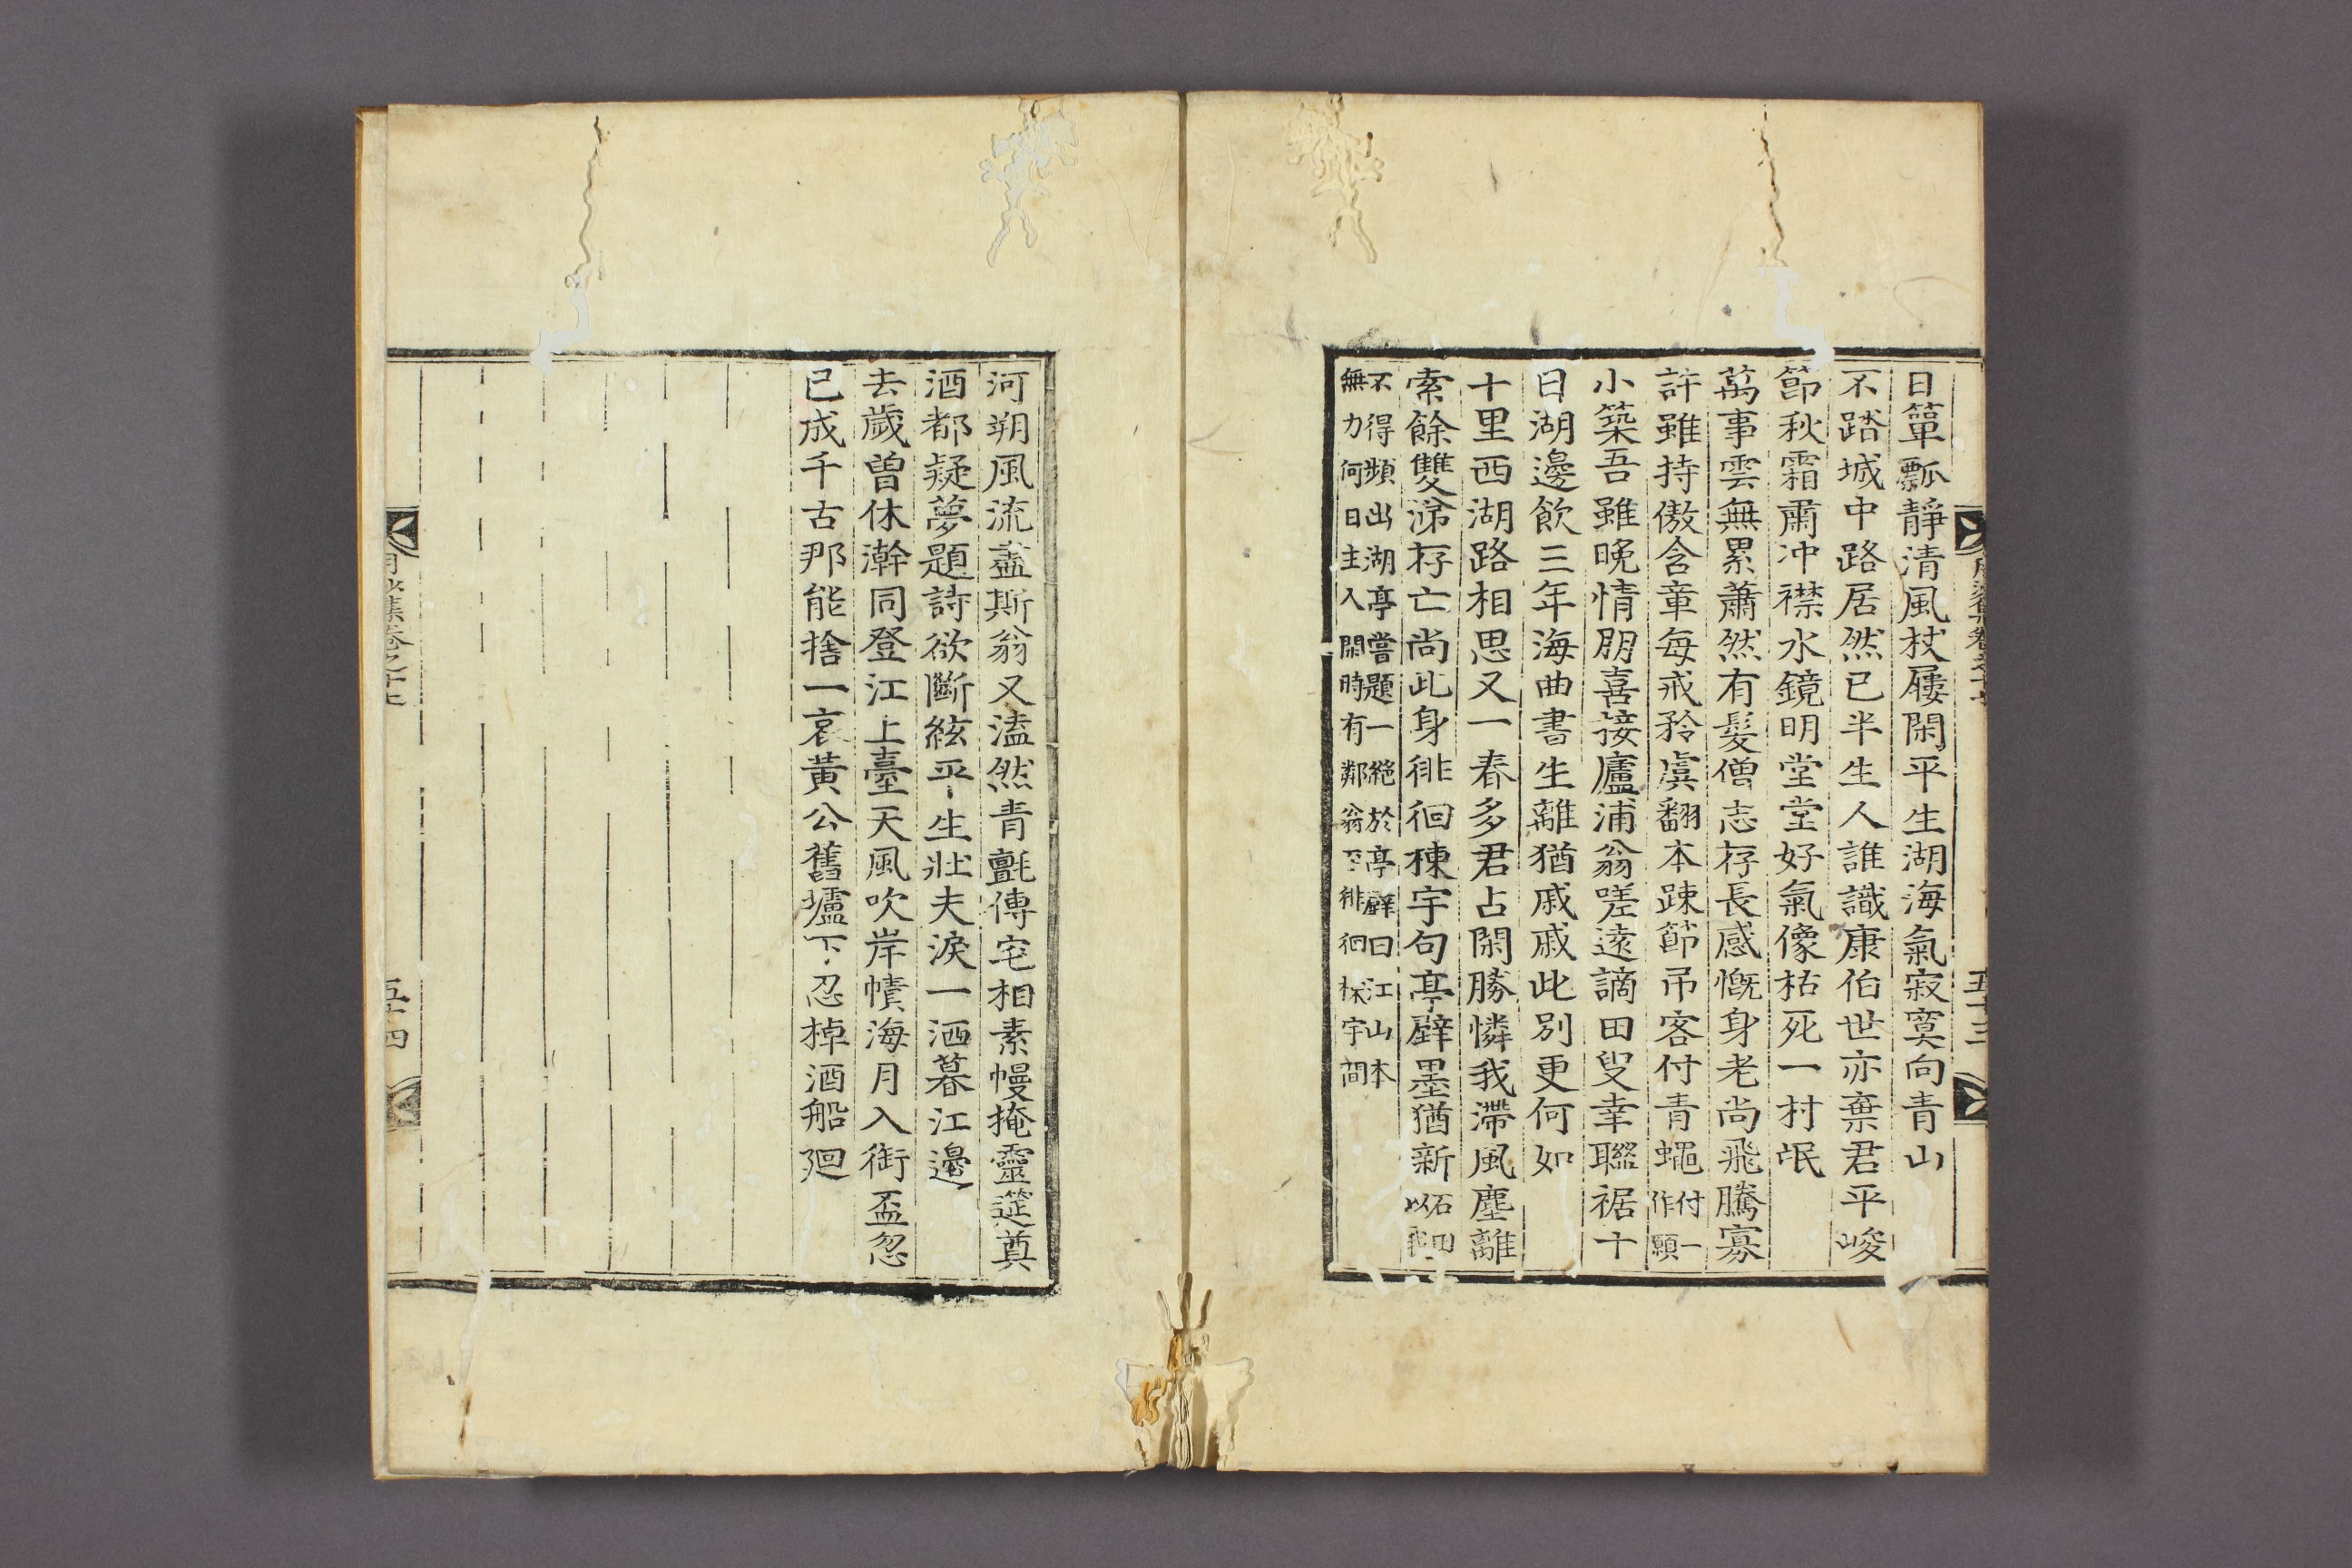 日簞瓢靜清風杖屨閑平生湖海氣寂寞向青山
不踏城中路居然已半生人誰識康伯世亦棄君平峻
節秋霜肅冲襟水鏡明堂堂好氣像枯死一村氓
萬事雲無累蕭然有髮僧志存長感慨身老尚飛騰寡
許雖持傲含章每戒矜虞翻本踈節吊客付青蠅付一作願
小築吾雖晚情朋喜接廬浦翁嗟遠謫田叟幸聯裾十
日湖邊飮三年海曲書生離猶戚戚此別更何如
十里西湖路相思又一春多君占閑勝憐我滯風塵離
索餘雙涕存亡尚此身徘徊棟宇句亭壁墨猶新石田以
不得頻出湖亭嘗題一絶於亭壁曰江山本
無力何日主人閑時有鄰翁至徘徊棟宇間
五十三
河朔風流盡斯翁又溘然青氈傳宅相素幔掩靈筵奠
酒都疑夢題詩欲斷絃平生壯夫淚一洒暮江邊
去歲曾休澣同登江上臺天風吹岸幘海月入銜盃忽
已成千古那能捨一哀黃公舊壚下忍棹酒船廻
月沙集卷之十七
五十四